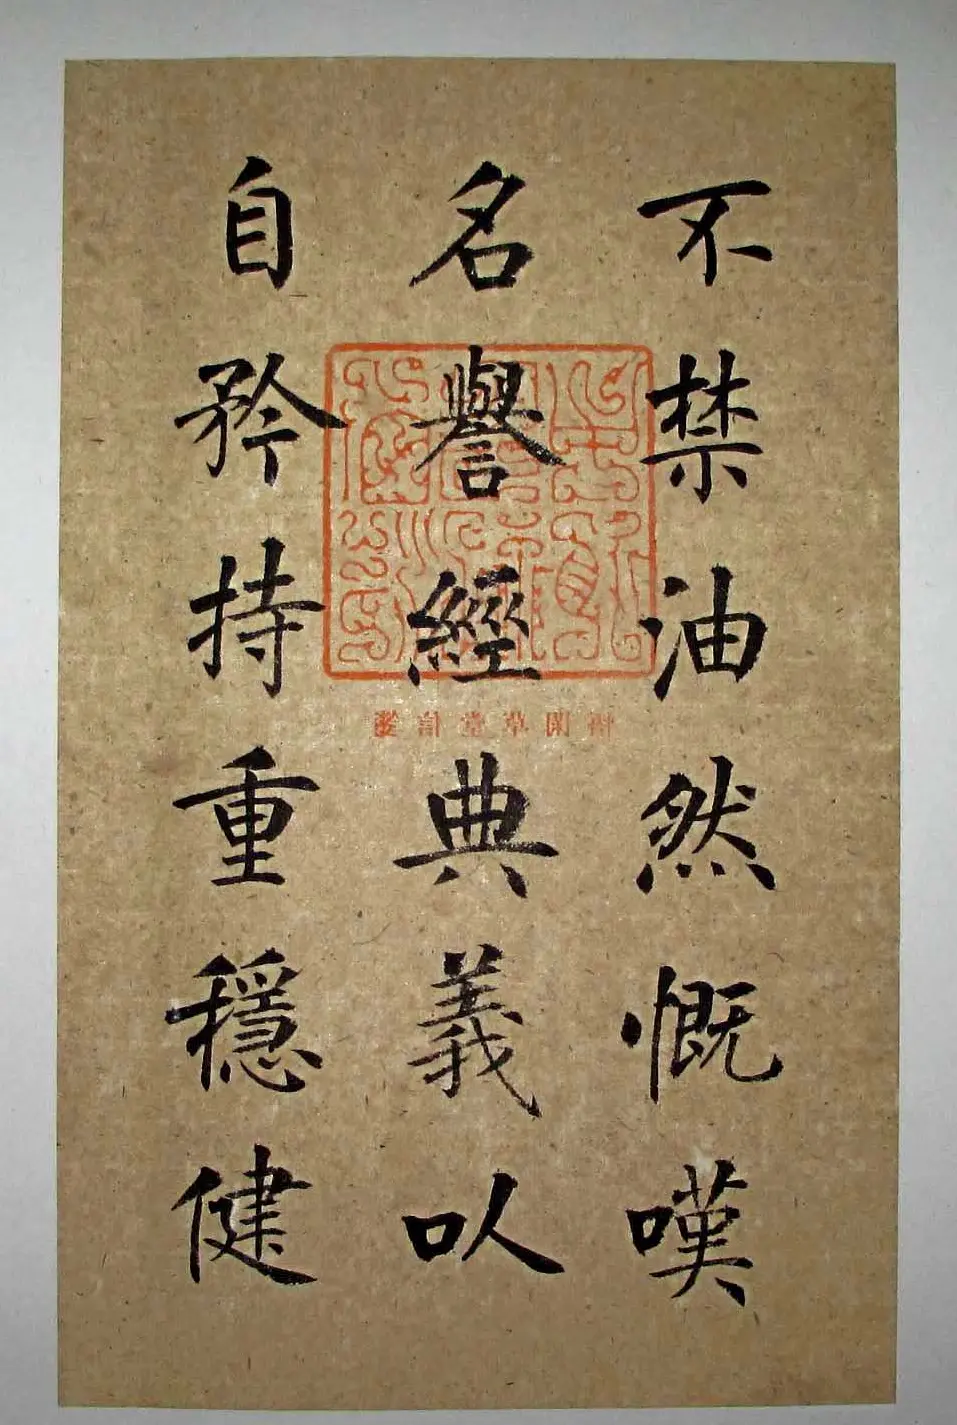 不禁油然慨嘆
名譽經典義以
自矜持重穩健